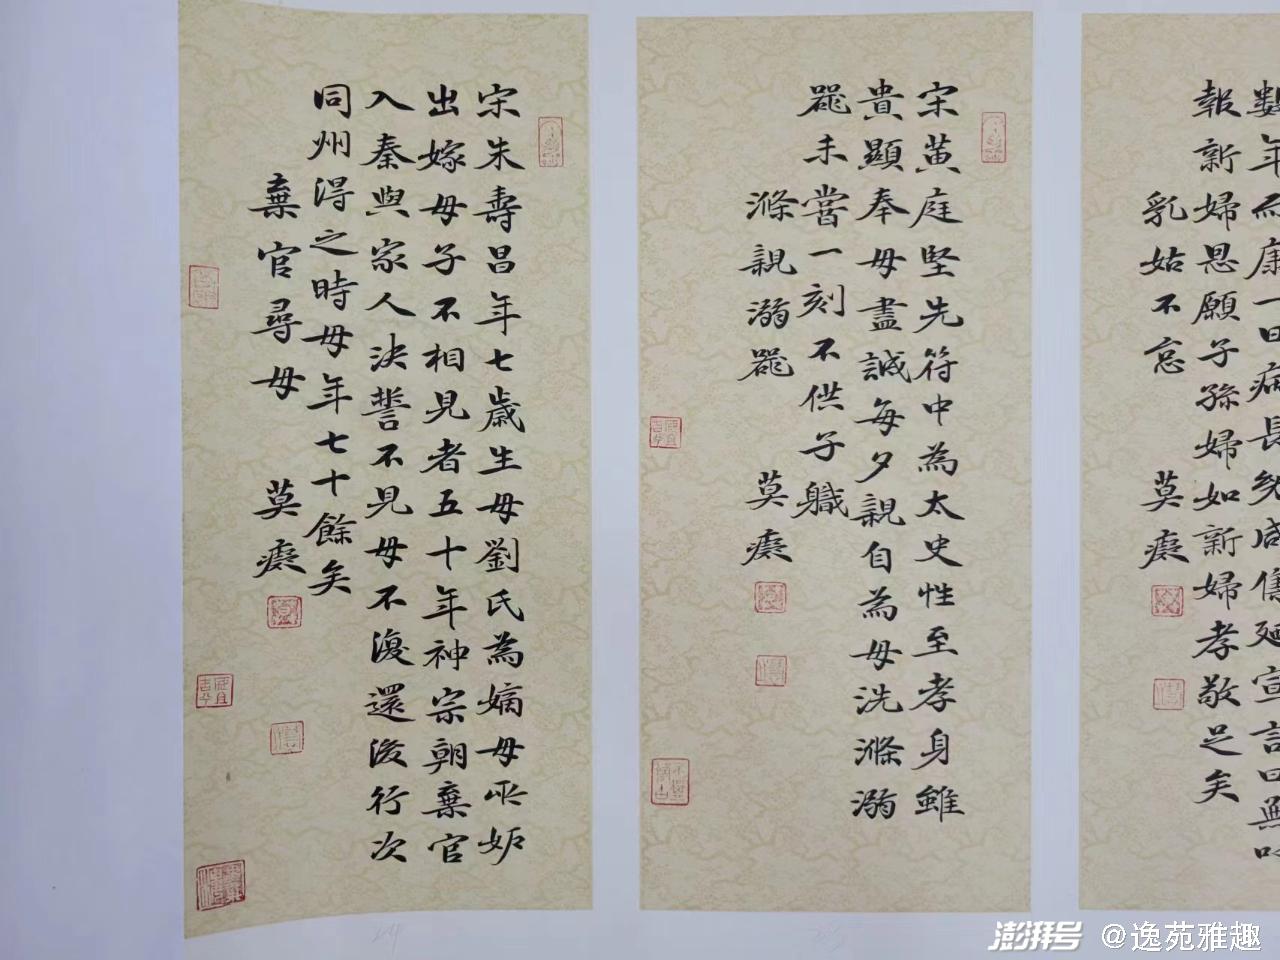 數年而康一日病長幼咸集
報新婦恩願子孫婦如新婦孝敬足矣
乳姑不怠
莫癡
宋黃庭堅先符中為太史性至孝身雖
貴顯奉母盡誠每夕親自為母洗滌溺
器未嘗一刻不供子職
滌親溺器
莫癡
宋朱壽昌年七歲生母劉氏為嫡母所妒
出嫁母子不相見者五十年神宗朝棄官
入秦與家人決誓不見母不復還後行次
同州得之時母年七十餘矣
棄官尋母
莫癡
24
23
澎湃号 @逸苑雅趣